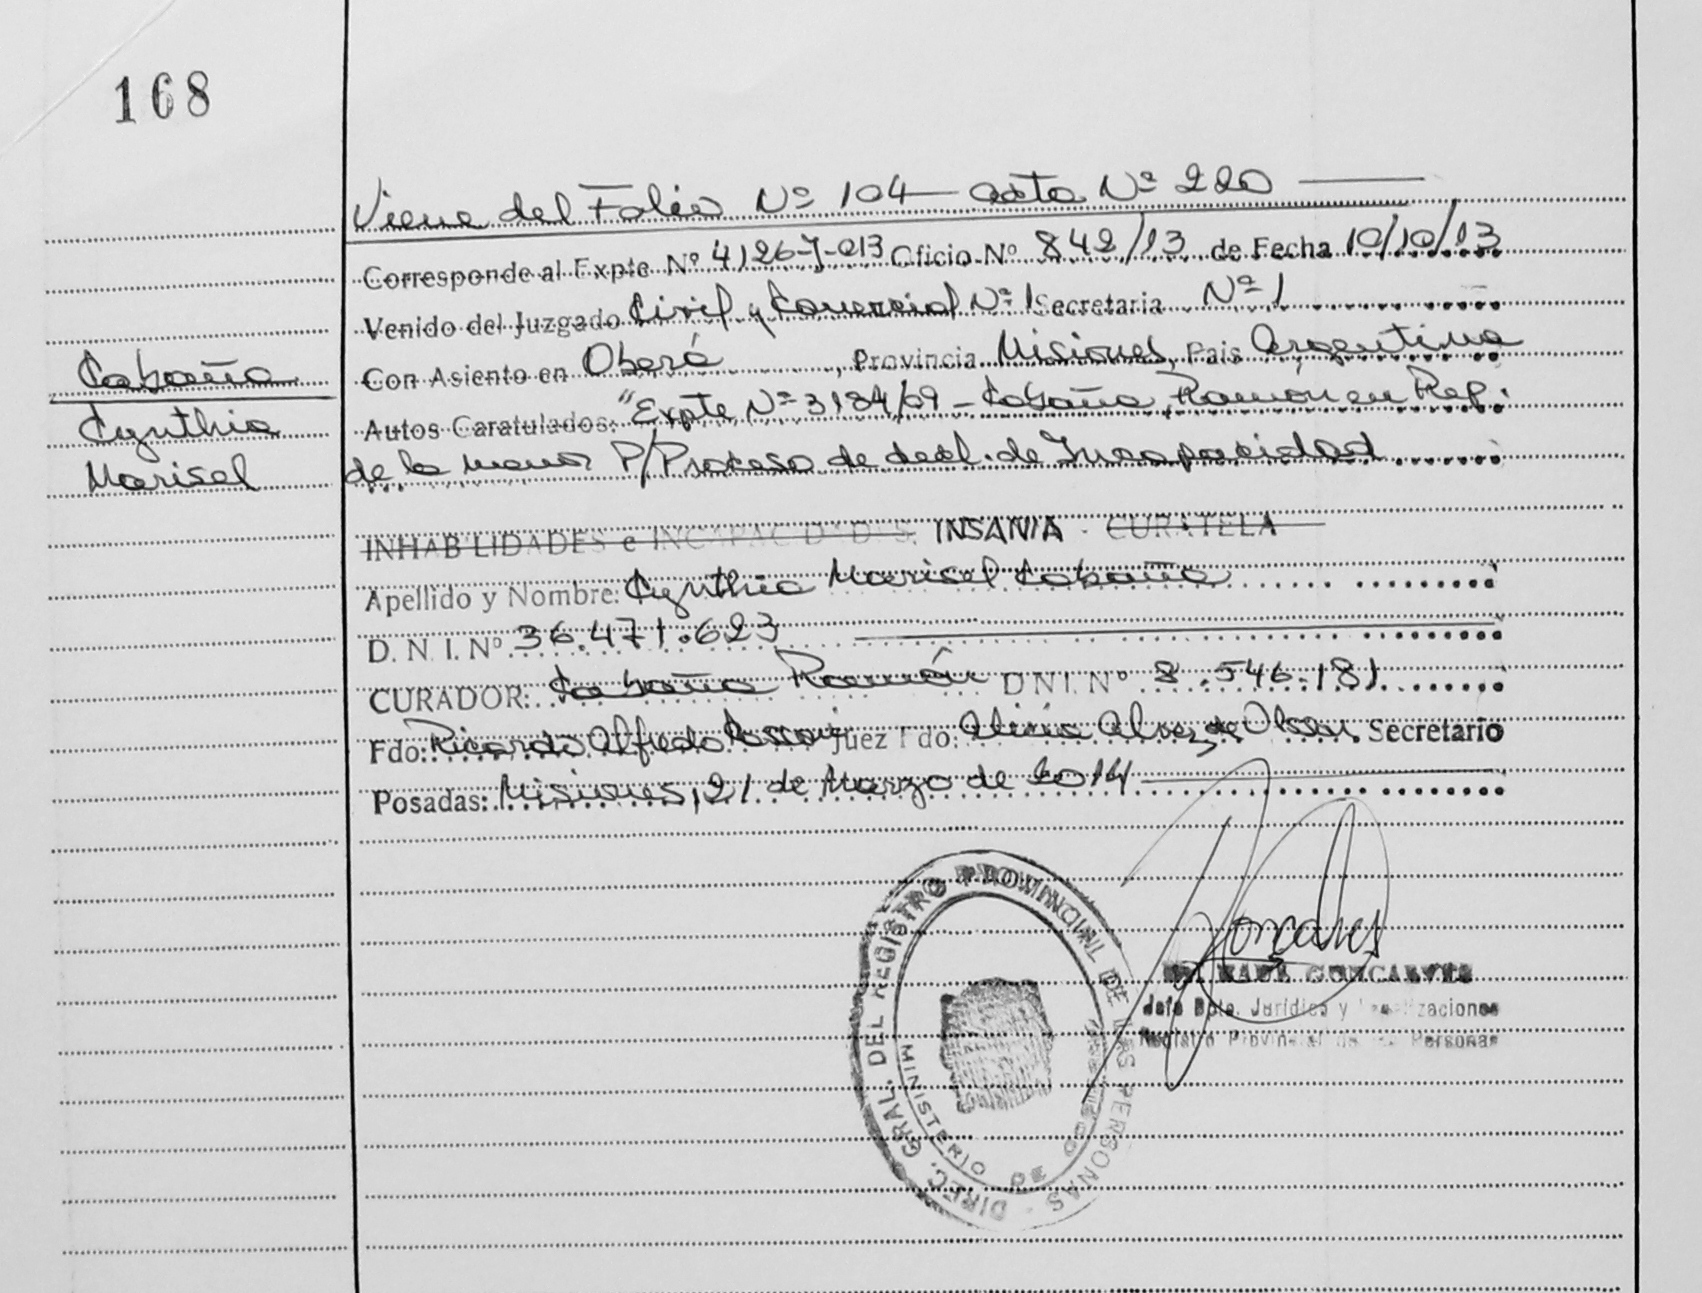 168
Viene del Folio Nº 104 — acta Nº 220 —
Corresponde al Expte Nº 41267-013 Oficio Nº 842/13 de Fecha 10/10/13
Venido del Juzgado Civil y Comercial Nº 1 Secretaria Nº 1
Con Asiento en Oberá, Provincia Misiones, Pais Argentina
Autos Caratulados: "Expte Nº 3184/09 - Cabaña Ramón en Rep.
de la menor P/Proceso de decl. de Incapacidad
Cabaña
Cynthia
Marisel
INHABILIDADES e INCAPACIDADES. INSANIA - CURATELA
Apellido y Nombre: Cynthia Marisel Cabaña
D. N. I. Nº 36.471.623
CURADOR: Cabaña Ramón D N I. Nº 8.546.181
Fdo: Ricardo Alfredo Juez Fdo: de Secretario
Posadas: Misiones, 21 de Marzo de 2014
DIREC. GRAL. DEL REGISTRO PROVINCIAL DE LAS PERSONAS
MINISTERIO DE
GONCALVES
Jefe Dpto. Jurídico y Legalizaciones
Registro Provincial de las Personas